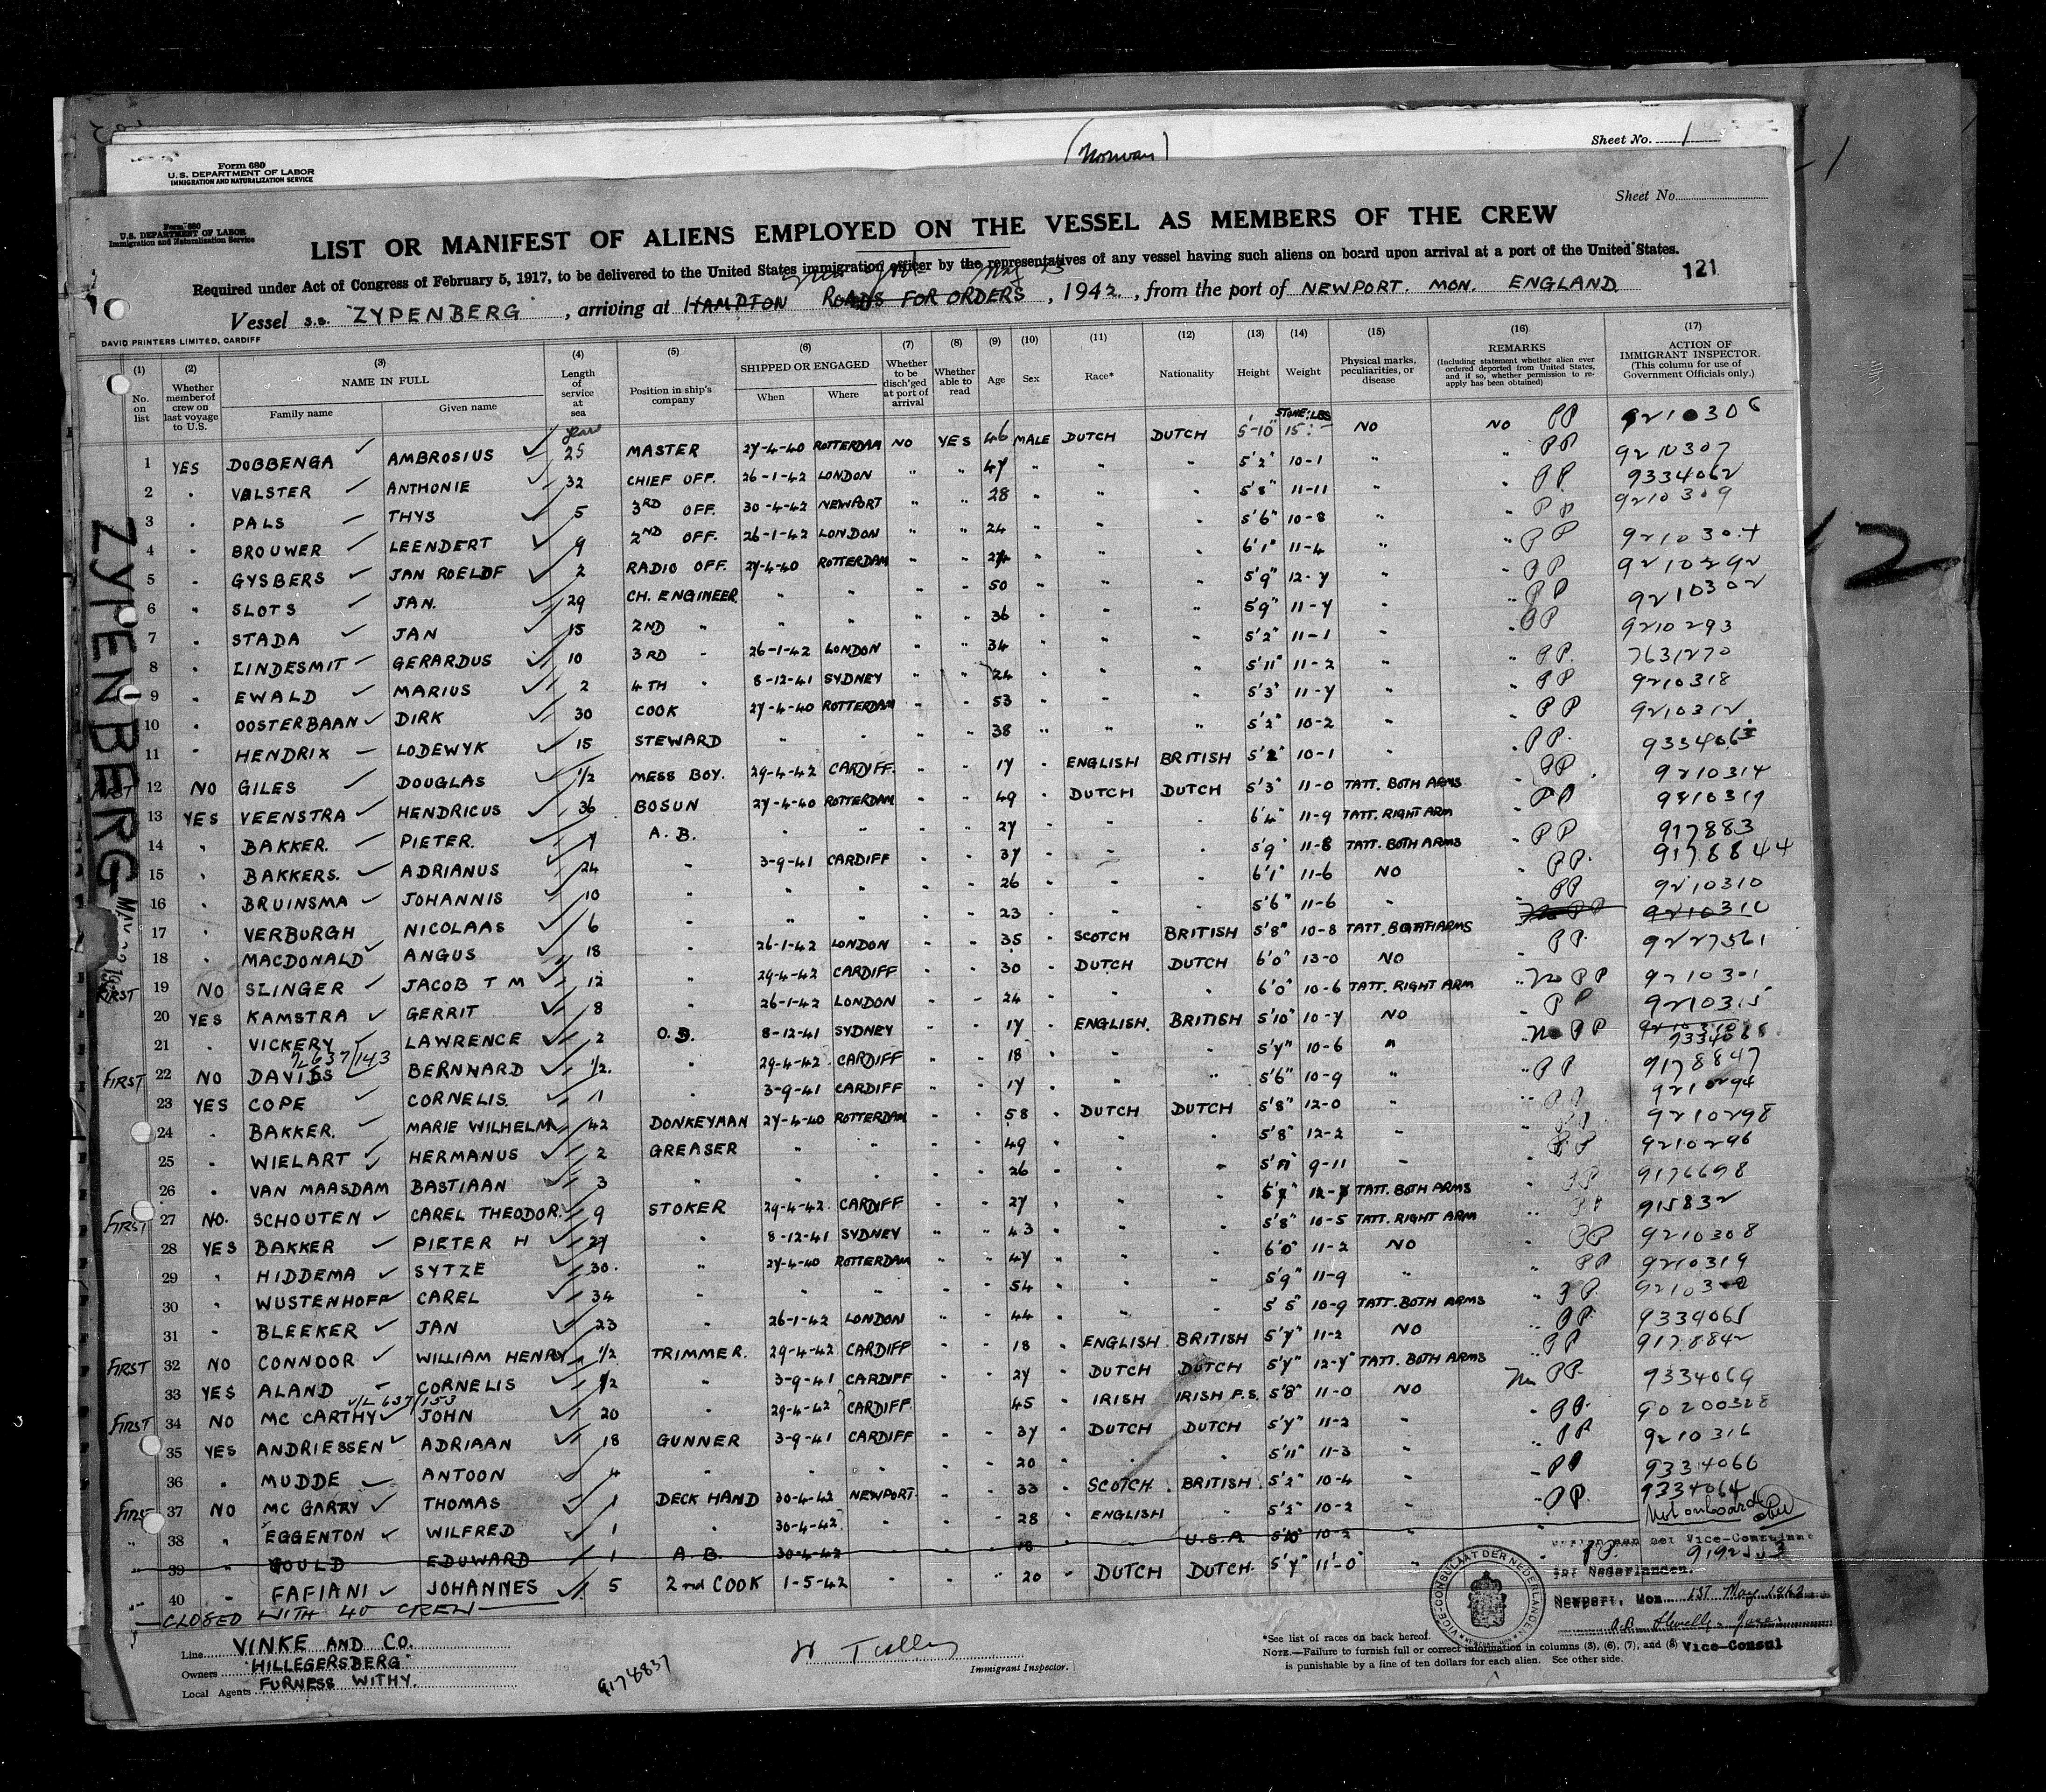 (Norway)
Sheet No. 1
Form 680
U.S. DEPARTMENT OF LABOR
IMMIGRATION AND NATURALIZATION SERVICE
Sheet No.
Form 680
U.S. DEPARTMENT OF LABOR
Immigration and Naturalization Service
LIST OR MANIFEST OF ALIENS EMPLOYED ON THE VESSEL AS MEMBERS OF THE CREW
Required under Act of Congress of February 5, 1917, to be delivered to the United States immigration officer by the representatives of any vessel having such aliens on board upon arrival at a port of the United States.
121
Vessel s.s. "ZYPENBERG", arriving at HAMPTON ROADS FOR ORDERS, 1942, from the port of NEWPORT. MON. ENGLAND
DAVID PRINTERS LIMITED, CARDIFF
(1) No. on list (2) Whether member of crew on last voyage to U.S. (3) NAME IN FULL Family name Given name (4) Length of service at sea (5) Position in ship's company (6) SHIPPED OR ENGAGED When Where (7) Whether to be disch'ged at port of arrival (8) Whether able to read (9) Age (10) Sex (11) Race* (12) Nationality (13) Height (14) Weight (15) Physical marks, peculiarities, or disease (16) REMARKS (Including statement whether alien ever ordered deported from United States, and if so, whether permission to re-apply has been obtained) (17) ACTION OF IMMIGRANT INSPECTOR. (This column for use of Government Officials only.)
years STONE: LBS
1 YES DOBBENGA AMBROSIUS 25 MASTER 27-4-40 ROTTERDAM NO YES 46 MALE DUTCH DUTCH 5'-10" 15:- NO NO PP 9210306
2 " VALSTER ANTHONIE 32 CHIEF OFF. 26-1-42 LONDON " " 47 " " " 5'2" 10-1 " " PP 9210307
3 " PALS THYS 5 3RD OFF. 30-4-42 NEWPORT " " 28 " " " 5'8" 11-11 " " PP 9334062
4 " BROUWER LEENDERT 9 2ND OFF. 26-1-42 LONDON " " 24 " " " 5'6" 10-8 " " PP 9210309
5 " GYSBERS JAN ROELOF 2 RADIO OFF. 27-4-40 ROTTERDAM " " 24 " " " 6'1" 11-4 " " PP 9210304
6 " SLOTS JAN. 29 CH. ENGINEER " " " " 50 " " " 5'9" 12-7 " " PP 9210292
7 " STADA JAN 15 2ND " " " " " 36 " " " 5'9" 11-7 " " PP 9210302
8 " LINDESMIT GERARDUS 10 3RD " 26-1-42 LONDON " " 34 " " " 5'2" 11-1 " " PP 9210293
9 " EWALD MARIUS 2 4TH " 8-12-41 SYDNEY " " 24 " " " 5'11" 11-2 " " PP. 7631270
10 " OOSTERBAAN DIRK 30 COOK 27-4-40 ROTTERDAM " " 53 " " " 5'3" 11-7 " " PP 9210318
11 " HENDRIX LODEWYK 15 STEWARD " " " " 38 " " " 5'2" 10-2 " " PP 9210312
FIRST 12 NO GILES DOUGLAS 1/2 MESS BOY. 29-4-42 CARDIFF. " " 17 " ENGLISH BRITISH 5'2" 10-1 " " PP. 9334063
13 YES VEENSTRA HENDRICUS 36 BOSUN 27-4-40 ROTTERDAM " " 49 " DUTCH DUTCH 5'3" 11-0 TATT. BOTH ARMS " PP 9210314
14 " BAKKER. PIETER. 7 A.B. " " " " 27 " " " 6'4" 11-9 TATT. RIGHT ARM " PP 9210317
15 " BAKKERS. ADRIANUS 24 " 3-9-41 CARDIFF " " 37 " " " 5'9" 11-8 TATT. BOTH ARMS " PP 917883
16 " BRUINSMA JOHANNIS 10 " " " " " 26 " " " 6'1" 11-6 NO " PP. 9178844
17 " VERBURGH NICOLAAS 6 " " " " " 23 " " " 5'6" 11-6 " " PP 9210310
18 " MACDONALD ANGUS 18 " 26-1-42 LONDON " " 35 " SCOTCH BRITISH 5'8" 10-8 TATT. BOTH ARMS No PP 9210310 PP. 9227561
FIRST 19 NO SLINGER JACOB T M 12 " 29-4-42 CARDIFF " " 30 " DUTCH DUTCH 6'0" 13-0 NO
20 YES KAMSTRA GERRIT 8 " 26-1-42 LONDON " " 24 " " " 6'0" 10-6 TATT. RIGHT ARM " No PP 9210301
21 " VICKERY LAWRENCE 2 O.S. 8-12-41 SYDNEY " " 17 " ENGLISH. BRITISH 5'10" 10-7 NO PP 9210315
V/L 637/143
FIRST 22 NO DAVIES BERNNARD 1/2. " 29-4-42 CARDIFF " " 18 " " " 5'7" 10-6 " No PP 9334068
23 YES COPE CORNELIS. 1 " 3-9-41 CARDIFF " " 17 " " " 5'6" 10-9 " " PP 9178847
24 " BAKKER. MARIE WILHELM 42 DONKEYMAN 27-4-40 ROTTERDAM " " 58 " DUTCH DUTCH 5'8" 12-0 " " PP 9210294
25 " WIELART HERMANUS 2 GREASER " " " " 49 " " " 5'8" 12-2 " " PP 9210298
26 " VAN MAASDAM BASTIAAN 3 " " " " " 26 " " " 9-11 " " PP 9210296
FIRST 27 NO. SCHOUTEN CAREL THEODOR. 9 STOKER 29-4-42. CARDIFF " " 27 " " " 5'7" 12-7 TATT. BOTH ARMS PP 9176698
28 YES BAKKER PIETER H 27 " 8-12-41 SYDNEY " " 43 " " " 5'8" 10-5 TATT. RIGHT ARM " PP 915832
29 " HIDDEMA SYTZE 30. " 27-4-40 ROTTERDAM " " 47 " " " 6'0" 11-2 NO PP 9210308
30 " WUSTENHOFF CAREL 34 " " " " " 54 " " " 5'9" 11-9 " " PP 9210319
31 " BLEEKER JAN 23 " 26-1-42 LONDON " " 44 " " " 5'5" 10-9 TATT. BOTH ARMS " PP.
FIRST 32 NO CONNOOR WILLIAM HENRY 1/2 TRIMMER. 29-4-42 CARDIFF " " 18 " ENGLISH BRITISH 5'7" 11-2 NO " PP. 9334065
33 YES ALAND CORNELIS 1/2 " 3-9-41 CARDIFF " " 27 " DUTCH DUTCH 5'7" 12-7 TATT. BOTH ARMS " PP 9178842
V/L 637/153
FIRST 34 NO MC CARTHY JOHN 20 " 29-4-42 CARDIFF. " " 45 " IRISH IRISH F.S. 5'8" 11-0 NO No PP. 9334069
35 YES ANDRIESSEN ADRIAAN 18 GUNNER 3-9-41 CARDIFF " " 37 " DUTCH DUTCH 5'7" 11-2 " " PP. 90200328
36 " MUDDE ANTOON 4 " " " " " 20 " " " 5'11" 11-3 " " PP 9210316
FIRST 37 NO MC GARRY THOMAS 1 DECK HAND 30-4-42 NEWPORT. " " 33 " SCOTCH. BRITISH. 5'2" 10-4 " " PP 9334066
" 38 " EGGENTON WILFRED 1 " 30-4-42. " " " 28 " ENGLISH " 5'2" 10-2 " " PP. 9334064
" 39 " GOULD EDUWARD 1 A.B. 30-4-42 " " " 18 U.S.A 5'10" 10-2 " " Not on board
" 40 " FAFIANI JOHANNES 5 2nd COOK 1-5-42 " " " 20 " DUTCH DUTCH. 5'7" 11'-0" " PP.
CLOSED WITH 40 CREW
VICE-CONSULAAT DER NEDERLANDEN
der Nederlanden.
Newport, Mon 1ST May 1942
Vice-Consul
Line VINKE AND CO.
Owners "HILLEGERSBERG"
Local Agents FURNESS WITHY.
9178837
Immigrant Inspector.
*See list of races on back hereof.
NOTE.—Failure to furnish full or correct information in columns (3), (6), (7), and (8) is punishable by a fine of ten dollars for each alien. See other side.
ZYPENBERG
12